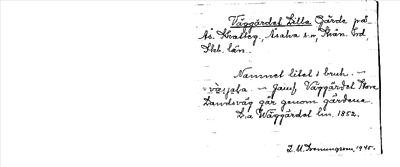 Väggärdet Lilla Gärde på
Ås. Kvalieg, Asaka s:n, Vän. hd,
Skb. län.
Namnet litet i bruk. —
— Jämf. Väggärdet Stora
Landsväg går genom gärdena.
L:a Wäggärdet lm. 1852.
1945.